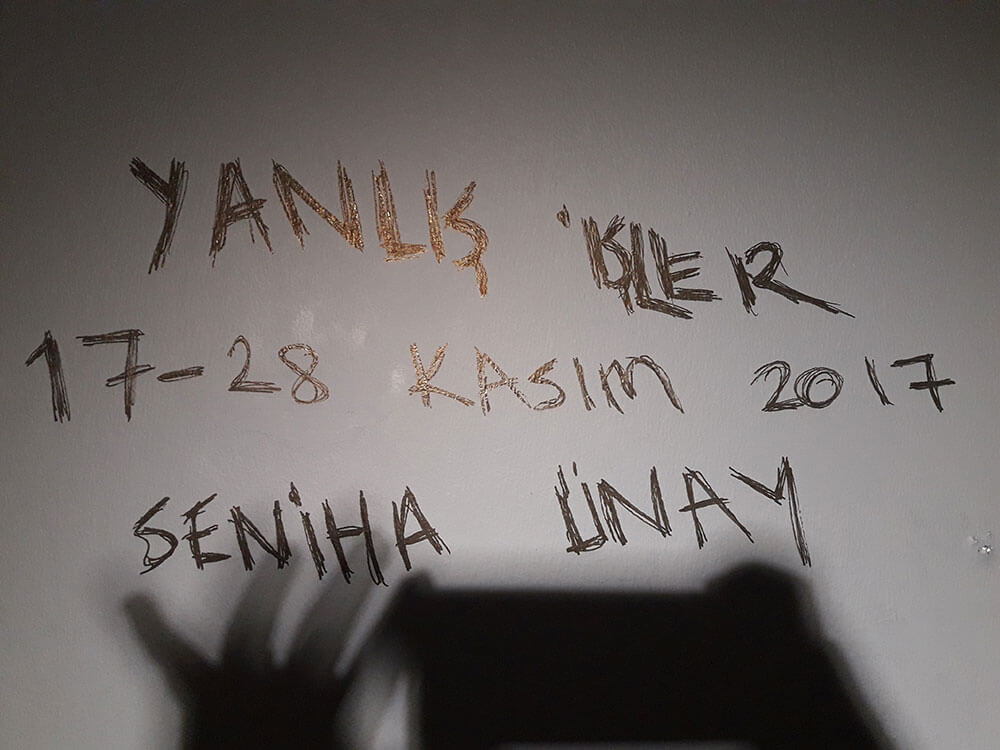 YANLIŞ İŞLER
17-28 KASIM 2017
SENİHA ÜNAY